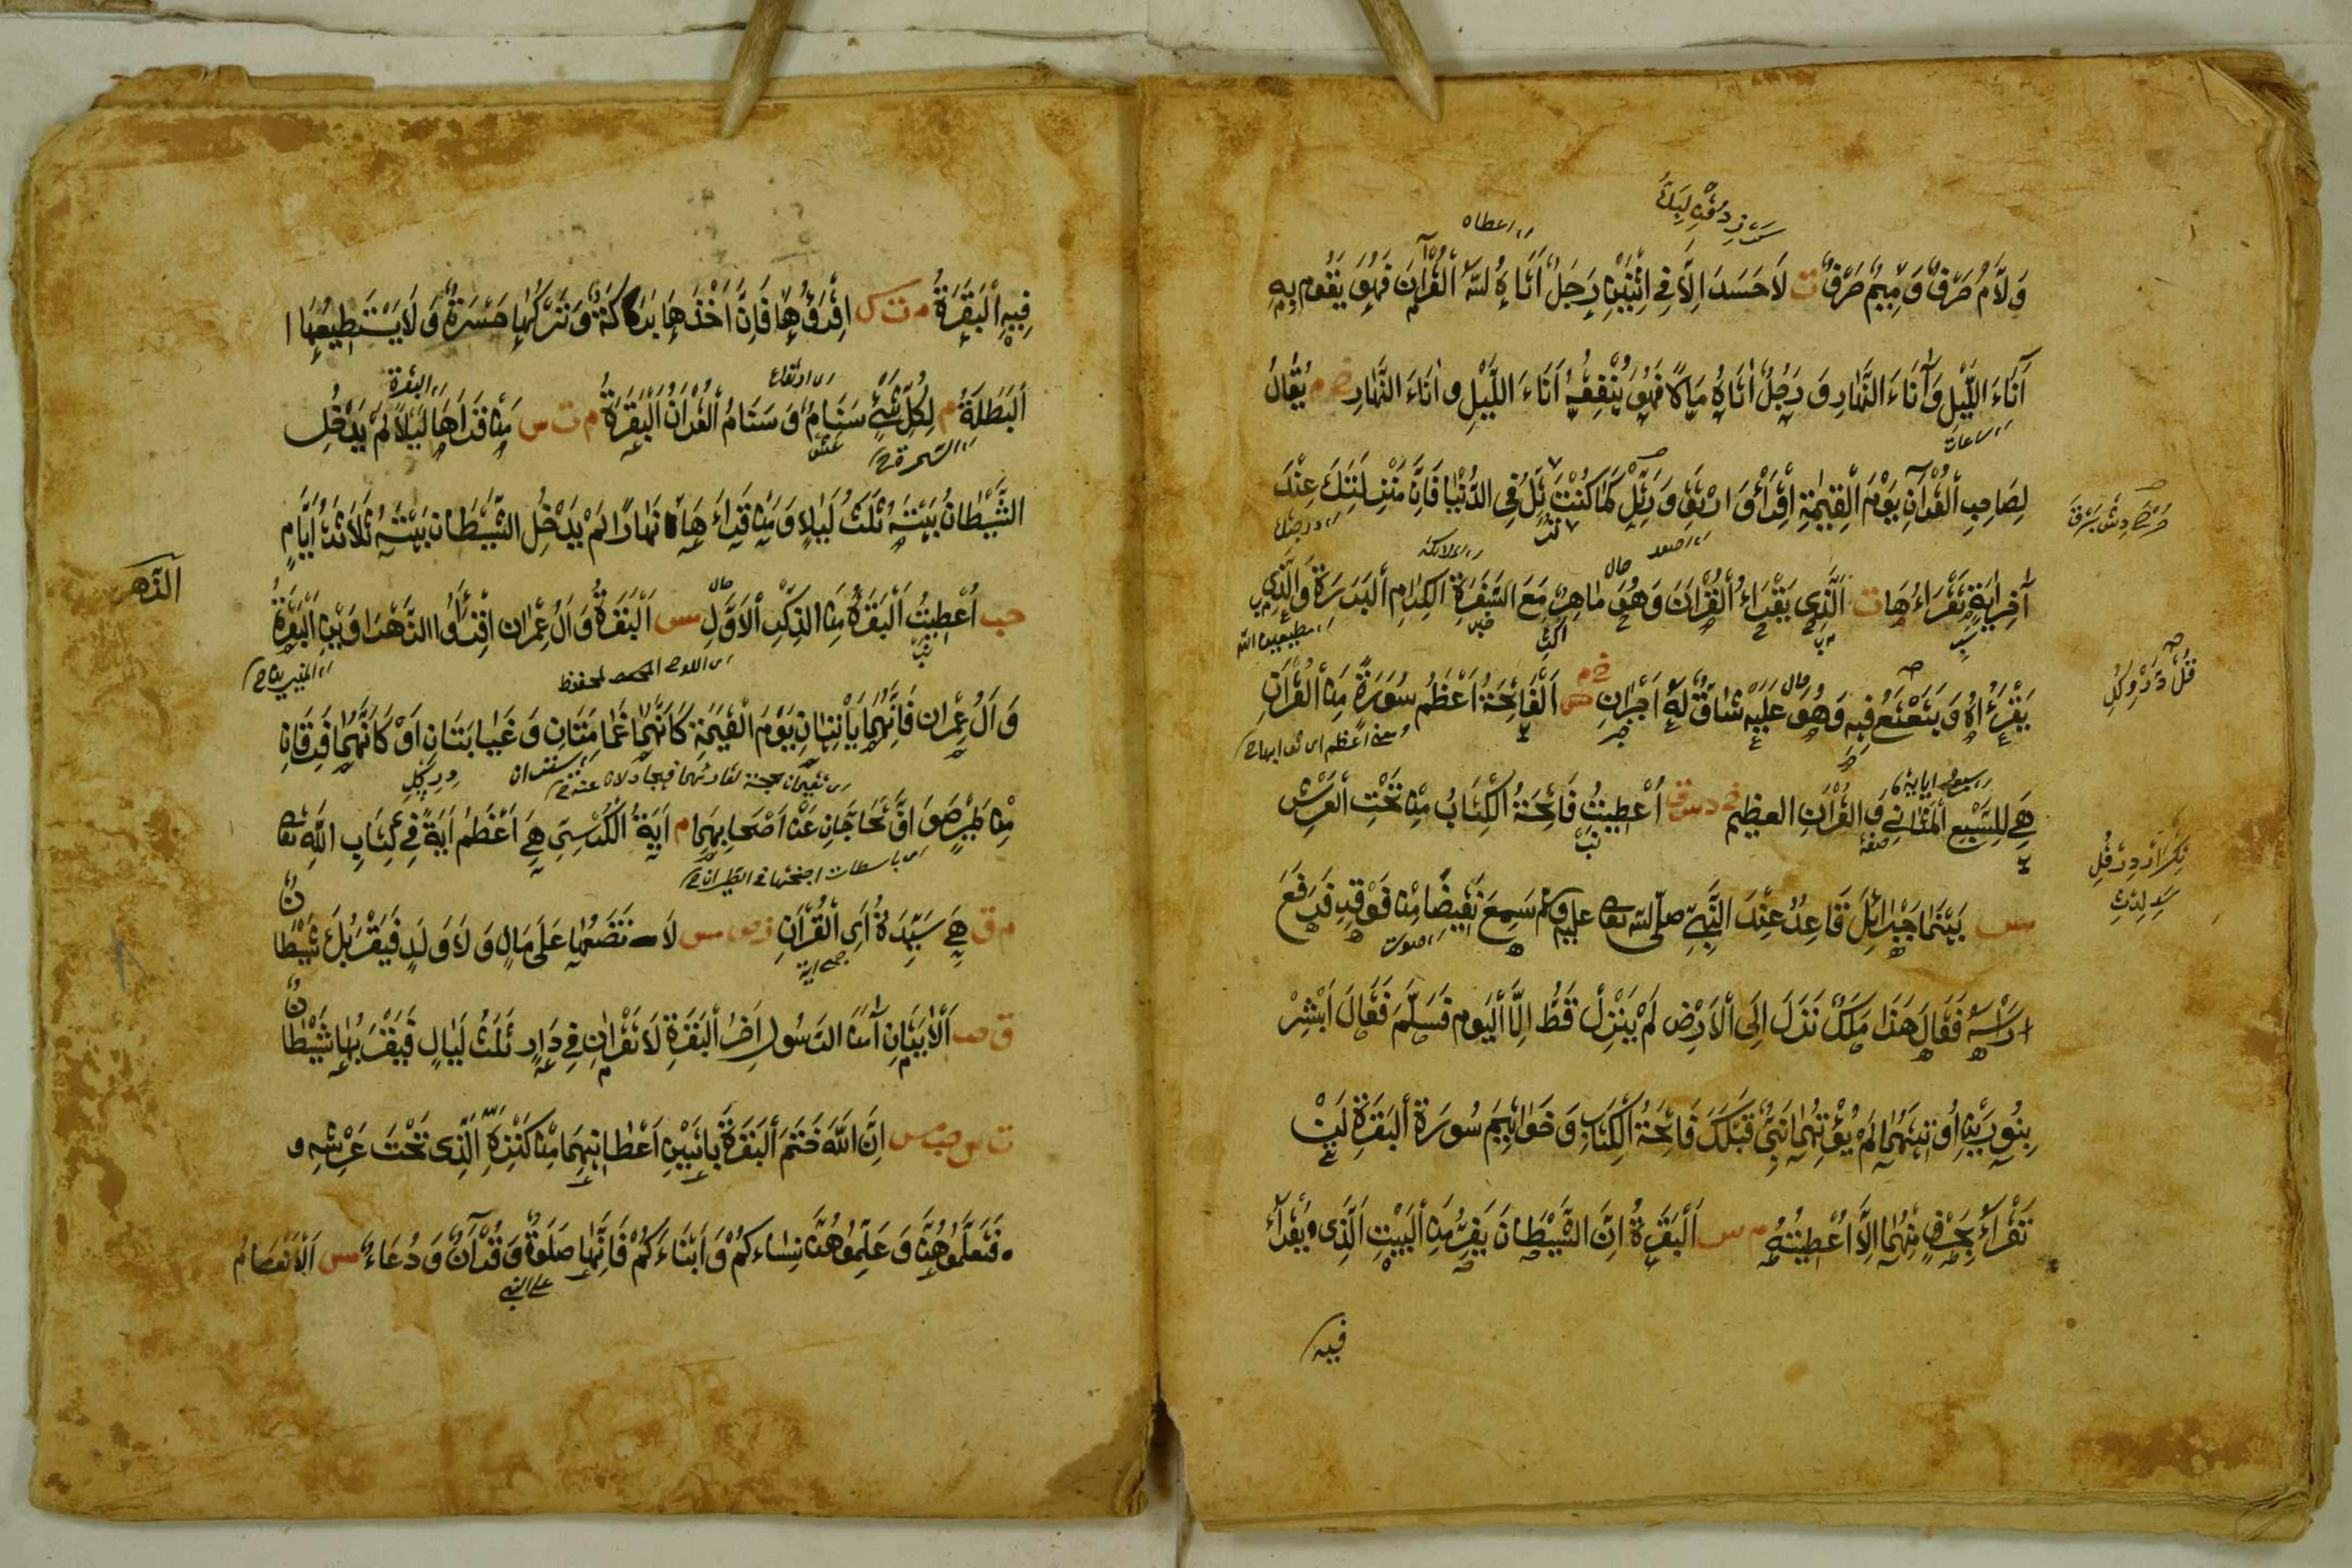 وَلَامٌ حَرْفٌ وَمِيمٌ حَرْفٌ ت لَا حَسَدَ اِلَّا فِي اثْنَيْنِ رَجُلٌ اَتَاهُ اللهُ الْقُرْآنَ فَهُوَ يَقُوم بِهِ
ای اعطاه
آنَاءَ اللَّيْلِ وَآنَاءَ النَّهَارِ وَ رَجُلٌ اَتَاهُ مَالًا فَهُوَ يُنْفِقُهُ اَنَاءَ اللَّيْلِ و اٰنَاءَ النَّهَارِ خ م يُقَالُ
ای ساعات
لِصَاحِبِ الْقُرْآنِ يَوْمَ الْقِيٰمَةِ اِقْرَأْ وَ ارْتَقِ وَ رَتِّلْ كَمَا كُنْتَ تُرَتِّلُ فِي الدُّنْيَا فَاِنَّ مَنْزِلَتَكَ عِنْدَ
ای اصعد
آخِرِ اٰيَةٍ تَقْرَاءُهَا ت اَلَّذِي يَقْرَاءُ الْقُرْآنَ وَهُوَ مَاهِرٌ مَعَ السَّفَرَةِ الْكِرَامِ الْبَرَرَةِ وَالَّذِي
حال
ای الملائكة
ای مطيعين الله
يَقْرَءُهُ وَ يَتَعْتَعُ فِيهِ وَهُوَ عَلَيْهِ شَاقٌّ لَهُ اَجْرَانِ خ م س اَلْفَاتِحَةُ اَعْظَمُ سُورَةٍ مِنَ الْقُرْآنِ
حال
هِيَ لِلسَّبْعِ الْمَثَانِي وَ الْقُرْآنِ العظيم خ د س ق اُعْطِيتُ فَاتِحَةُ الْكِتَابُ مِنْ تَحْتِ الْعَرْشِ
صفة
مس بَيْنَمَا جِبْرَائِلَ قَاعِدٌ عِنْدَ النَّبِيِّ صلّى الله تعالى عليه وسلم سَمِعَ نَقِيضًا مِنْ فَوْقِهِ فَرَفَعَ
ای صوت
رَاْسَهُ فَقَالَ هَذَا مَلَكٌ نَزَلَ اِلَى الْاَرْضِ لَمْ يَنْزِلْ قَطُّ اِلَّا الْيَومَ فَسَلَّمَ فَقَالَ اَبْشِرْ
بِنُورَيْنِ اُوتِيتَهُمَا لَمْ يُؤْتَهُمَا نَبِيٌّ قَبْلَكَ فَاتِحَةُ الْكِتَابِ وَ خَوَاتِيمُ سُورَةِ الْبَقَرَةِ لَنْ
تَقْرَاءَ بِحَرْفٍ مِنْهُمَا اِلَّا اُعْطِيْتَهُ م س اَلْبَقَرَةُ اِنَّ الشَّيْطَانَ يَفِرُّ مِنَ الْبَيْتِ الَّذِي يُقْرَاءُ
فيه
فِيهِ الْبَقَرَةُ م ت س اِقْرَؤُهَا فَاِنَّ اَخْذَهَا بَرَكَةٌ وَ تَرْكَهَا حَسْرَةٌ وَ لَا يَسْتَطِيعُهَا
الْبَطَلَةُ م لِكُلِّ شَيْءٍ سَنَامٌ وَ سَنَامُ الْقُرْآنِ الْبَقَرَةُ م ت س مَنْ قَرَاَهَا لَيْلًا لَمْ يَدْخُلِ
ای ارتفاع
ای البقرة
ای السحرة
الشَّيْطَانُ بَيْتَهُ ثَلٰثَ لَيَالٍ وَ مَنْ قَرَاءَهَا نَهَارًا لَمْ يَدْخُلِ الشَّيْطَانُ بَيْتَهُ ثَلَاثَةَ اَيَّامٍ
حب اُعْطِيتُ الْبَقَرَةُ مِنَ الذِّكْرِ الْاَوَّلِ مس اَلْبَقَرَةُ وَ آلُ عِمْرَان اِقْرَأُوا الزَّهْرَاوَيْنِ الْبَقَرَةَ
ای اللوح المحفوظ
ای المنيرين
الزهر
وَ آلُ عِمْرَان فَاِنَّهُمَا يَأْتِيَانِ يَوْمَ الْقِيٰمَةِ كَاَنَّهُمَا غَمَامَتَانِ وَ غَيَابَتَانِ اَوْ كَاَنَّهُمَا فِرْقَانِ
مِنْ طَيْرٍ صَوَافَّ تُحَاجَّانِ عَنْ اَصْحَابِهِمَا م اٰيَةُ الْكُرْسِيِّ هِيَ اَعْظَمُ اٰيَةٍ فِي كِتَابِ اللهِ تعالى
ای باسطات اجنحتها في الطيران
م ق هِيَ سَيِّدَةُ اٰيِ الْقُرْآنِ لَا تَضَعُهَا عَلَى مَالٍ وَ لَا وَلَدٍ فَيَقْرَبُكَ شَيْطَانٌ
اَلْاٰيَتَانِ آمَنَ الرَّسُولُ آخِرُ الْبَقَرَةِ لَا تُقْرَانِ فِي دَارٍ ثَلٰثَ لَيَالٍ فَيَقْرَبُهَا شَيْطَانٌ
ت س حب مس اِنَّ اللهَ خَتَمَ الْبَقَرَةَ بِاٰيَتَيْنِ اَعْطَانِيهِمَا مِنْ كَنْزِهِ الَّذِي تَحْتَ عَرْشِهِ و
فَتَعَلَّمُوهُنَّ وَ عَلِّمُوهُنَّ نِسَاءَكُمْ وَ اَبْنَاءَكُمْ فَاِنَّهَا صَلٰوةٌ وَ قُرْآنٌ وَ دُعَاءٌ مس اَلْاَنْعَامُ